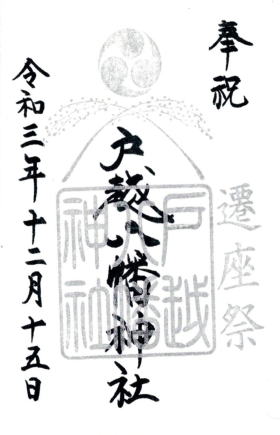 奉祝
遷座祭
戸越八幡神社
戸越八幡神社
令和三年十二月十五日